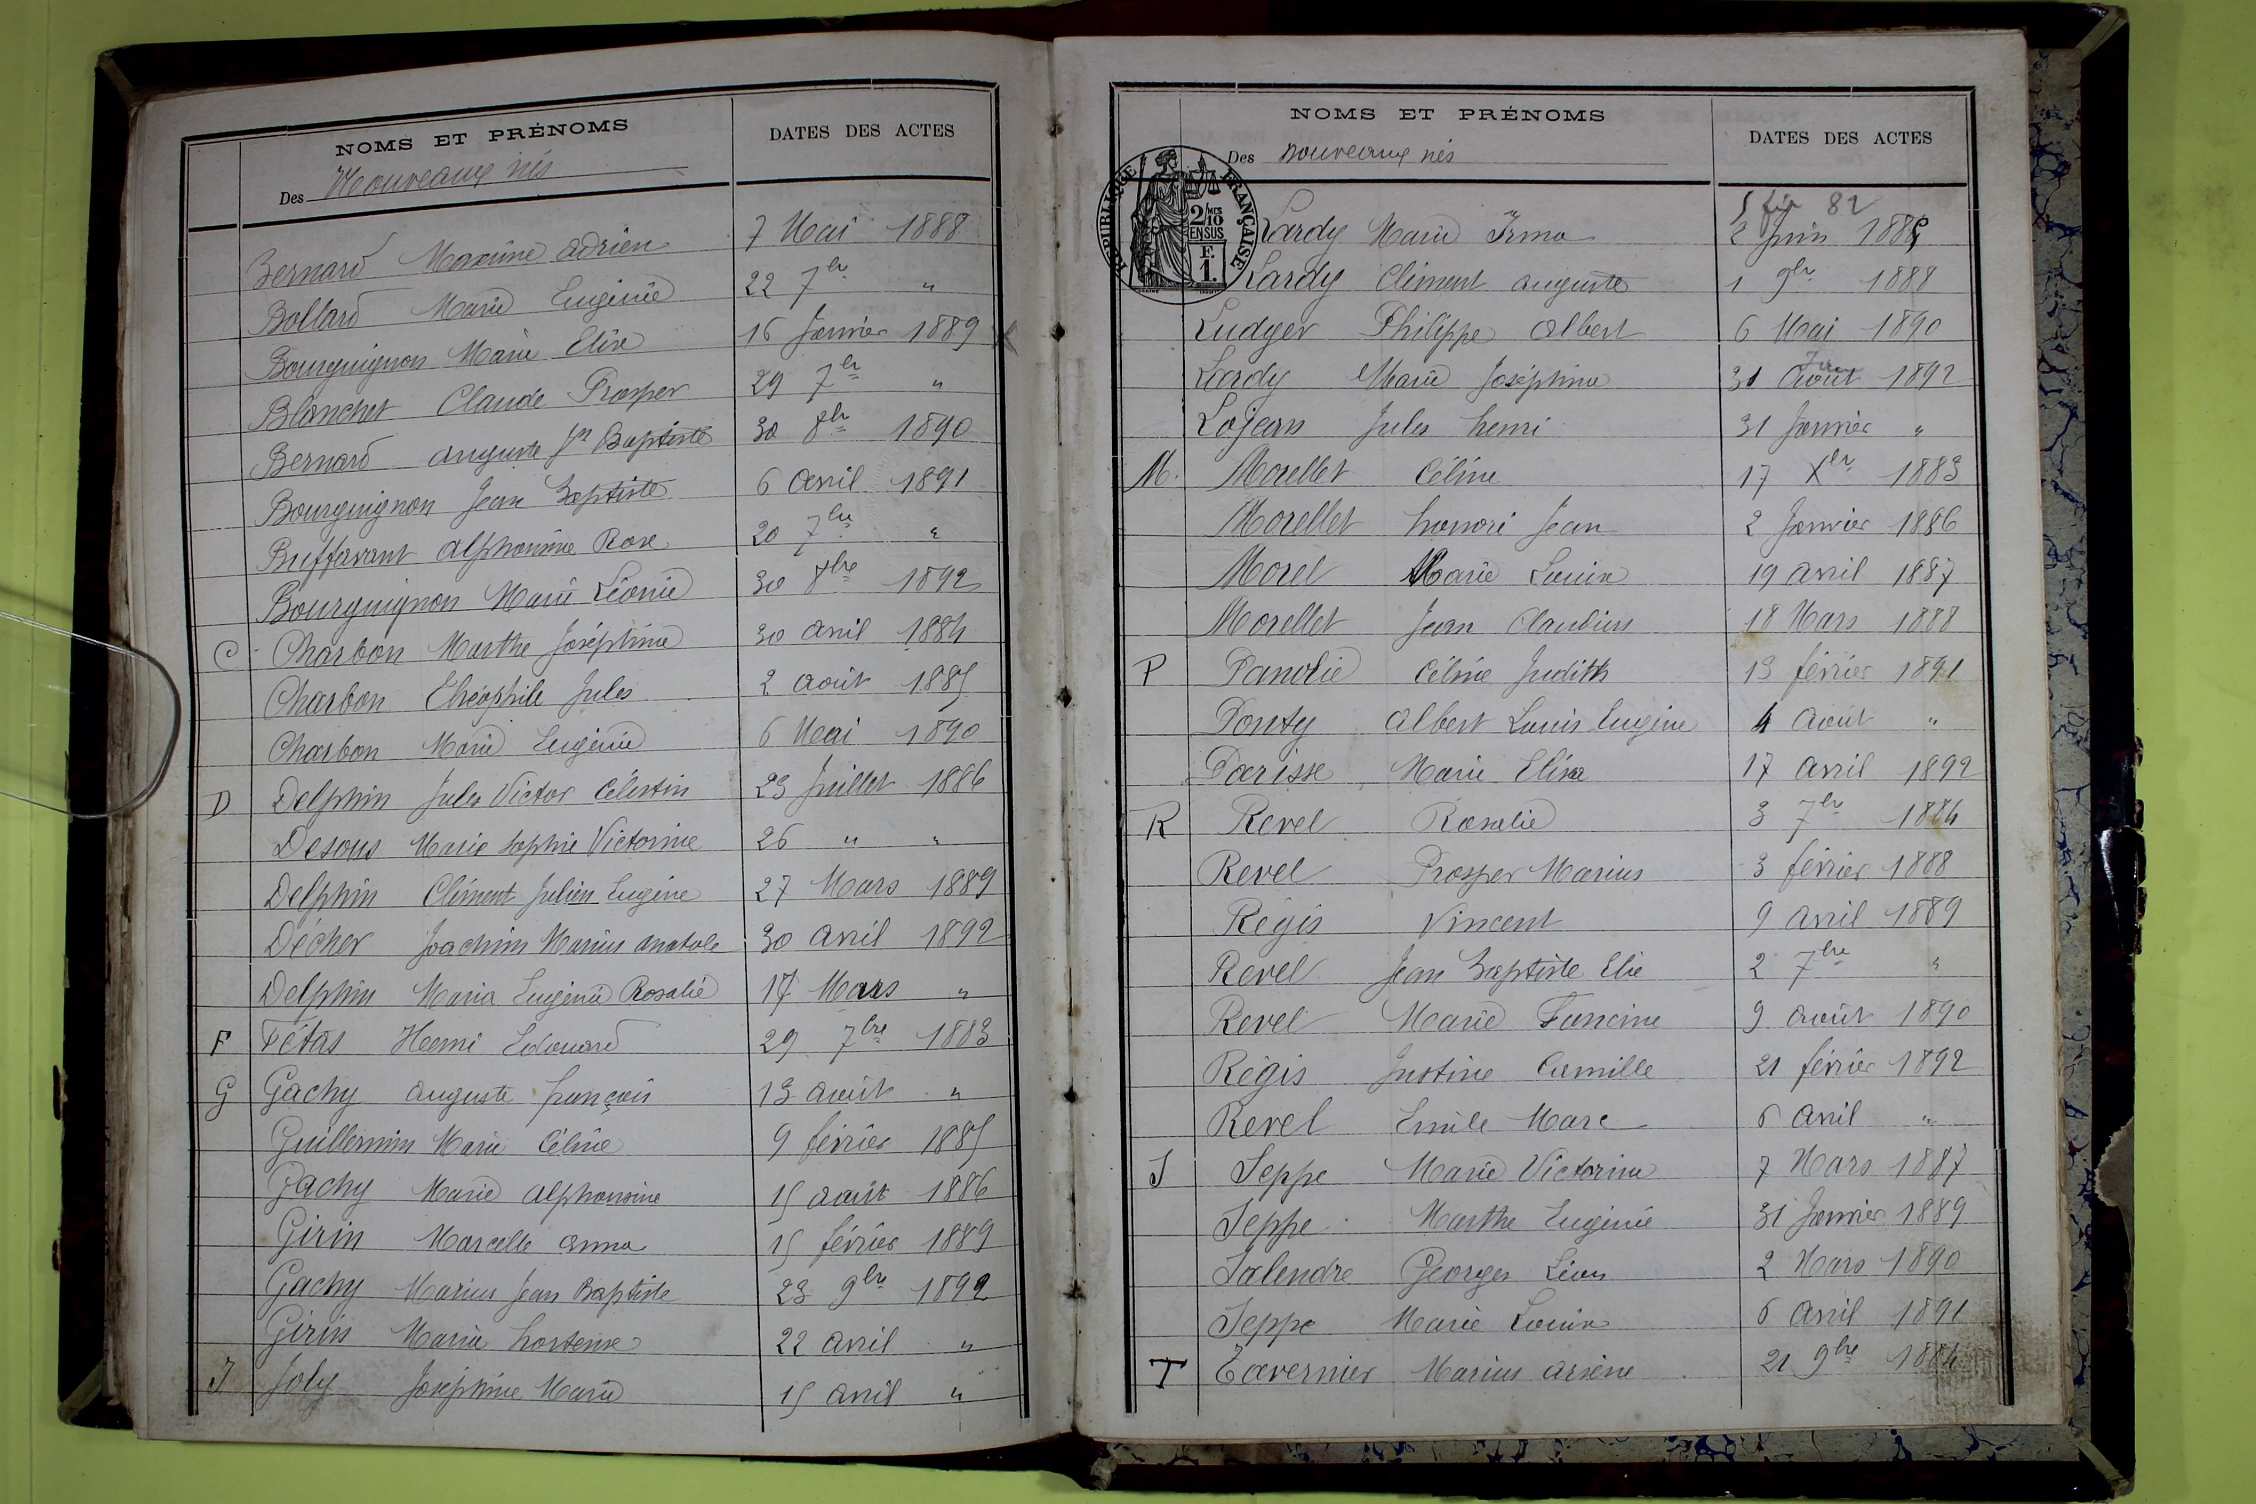 NOMS ET PRÉNOMS DATES DES ACTES
Des Nouveaux nés
Bernard Maxime Adrien 7 Mai 1888
Bollard Marie Eugénie 22 7br "
Bourguignon Marie Elise 16 Janvier 1889
Blanchet Claude Prosper 29 7br "
Bernard Auguste Jn Baptiste 30 8br 1890
Bourguignon Jean Baptiste 6 Avril 1891
Buffavant Alphonsine Rose 20 7br "
Bourguignon Marie Léonie 30 8bre 1892
C Charbon Marthe Joséphine 30 Avril 1884
Charbon Théophile Jules 2 Août 1885
Charbon Marie Eugénie 6 Mai 1890
D Delphin Jules Victor Célestin 23 Juillet 1886
Desous Marie Sophie Victorine 26 " "
Delphin Clément Julien Eugène 27 Mars 1889
Décher Joachim Marius Anatole 30 Avril 1892
Delphin Maria Eugénie Rosalie 17 Mars "
F Fétas Henri Edouard 29 7bre 1883
G Gachy Auguste françois 13 Août "
Guillermin Marie Céline 9 février 1885
Gachy Marie Alphonsine 15 Août 1886
Girin Marcelle Anna 15 février 1889
Gachy Marius Jean Baptiste 23 9br 1892
Girin Maria hortense 22 Avril "
J Joly Joséphine Marie 15 Avril "
NOMS ET PRÉNOMS DATES DES ACTES
Des nouveaux nés
RÉPUBLIQUE FRANÇAISE
2/10 MES
EN SUS
F.
1.
82
Lardy Marie Irma 2 Juin 1885
Lardy Clément Auguste 1 9br 1888
Ludger Philippe Albert 6 Mai 1890
Lardy Marie Joséphine 31 Août 1892
Lojean Jules henri 31 Janvier "
M. Morellet Céline 17 Xbr 1883
Morellet honoré Jean 2 Janvier 1886
Morel Marie Louise 19 Avril 1887
Morellet Jean Claudius 18 Mars 1888
P Panolié Céline Judith 13 février 1891
Ponty Albert Louis Eugène 4 Août "
Parisse Marie Elisa 17 Avril 1892
R Revel Rosalie 3 7br 1884
Revel Prosper Marius 3 février 1888
Régis Vincent 9 Avril 1889
Revel Jean Baptiste Elie 2 7bre "
Revel Marie Francine 9 Août 1890
Régis Justine Camille 21 février 1892
Revel Emile Marc 6 Avril "
S Seppe Marie Victorine 7 Mars 1887
Seppe Marthe Eugénie 31 Janvier 1889
Salendre Georges Léon 2 Mars 1890
Seppe Marie Louise 6 Avril 1891
T Tavernier Marius Arsène 21 9bre 1884